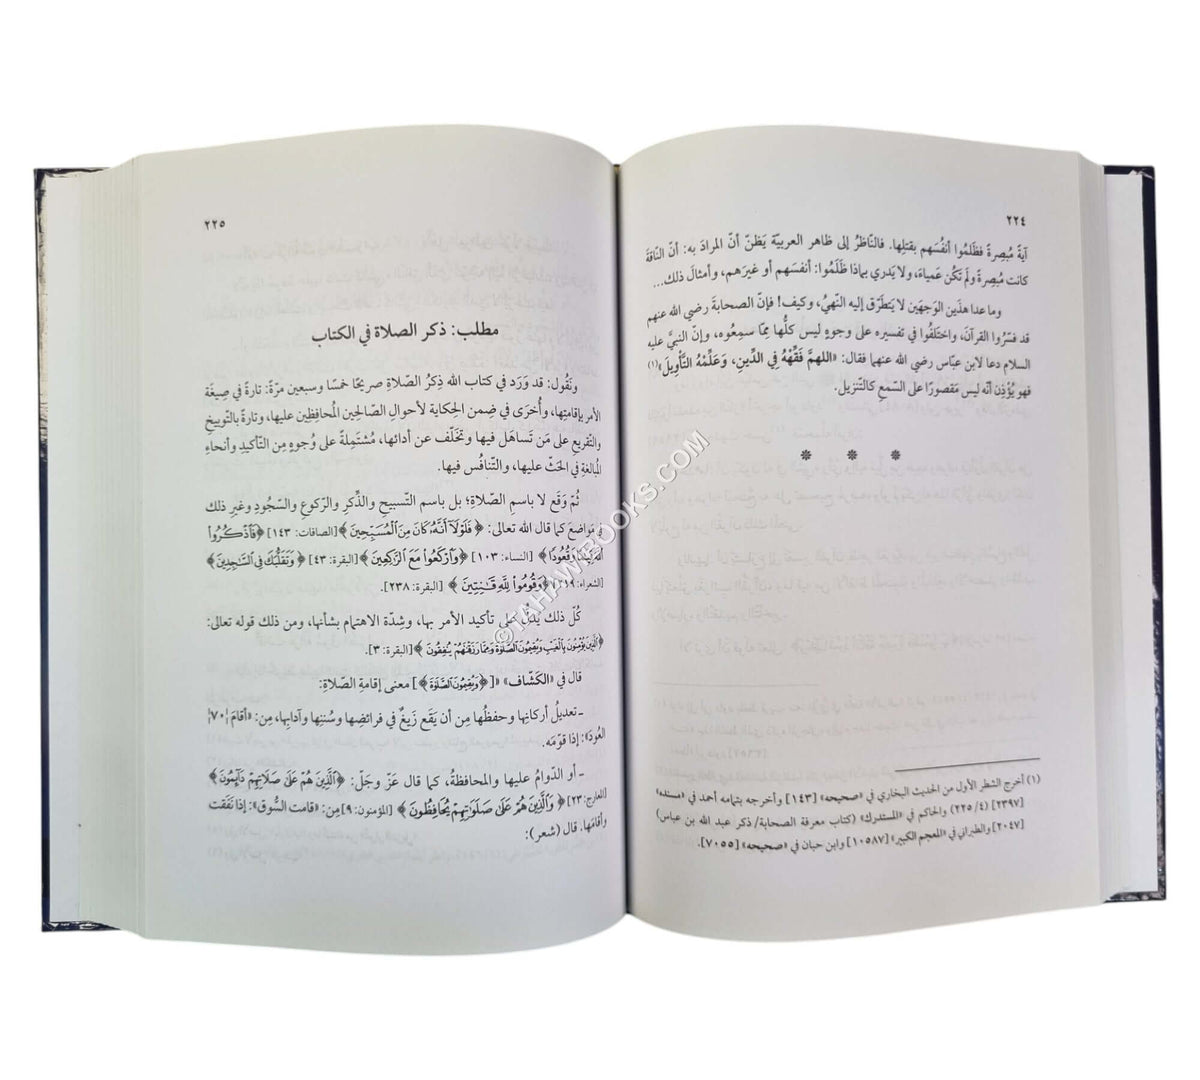 ٢٢٤
آيةً مُبصِرةً فظَلَمُوا أنفُسَهم بقتلِها. فالنّاظرُ إلى ظاهر العربيّة يَظنّ أنّ المرادَ به: أنّ النّاقةَ
كانت مُبصِرةً ولم تكُن عَمياءَ، ولا يَدري بماذا ظَلَمُوا: أنفسَهم أو غيرَهم، وأمثالَ ذلك...
وما عدا هذَين الوَجهَين لا يَتطرّق إليه النّهيُ، وكيف! فإنّ الصحابةَ رضي الله عنهم
قد فسَّرُوا القرآنَ، واختلَفُوا في تفسيره على وجوهٍ ليس كلُّها ممّا سمِعُوه، وإنّ النبيَّ عليه
السلام دعا لابن عباس رضي الله عنهما فقال: «اللهمَّ فَقِّهْهُ فِي الدِّينِ، وَعَلِّمْهُ التَّأْوِيلَ»(١)
فهو يُؤذِن أنّه ليس مَقصورًا على السّمعِ كالتّنزيل.
* * *
(١) أخرج الشطر الأول من الحديث البخاري في «صحيحه» [١٤٣] وأخرجه بتمامه أحمد في «مسنده»
[٢٣٩٧] والحاكم في «المستدرك» (كتاب معرفة الصحابة/ ذكر عبد الله بن عباس) (٤/ ٢٢٥)
[٢٠٤٧] والطبراني في «المعجم الكبير» [١٠٥٨٧] وابن حبان في «صحيحه» [٧٠٥٥].
٢٢٥
مطلب: ذكر الصلاة في الكتاب
ونَقُول: قد وَرَد في كتاب الله ذِكرُ الصّلاةِ صريحًا خمسًا وسبعين مرّةً: تارةً في صِيغة
الأمر بإقامتِها، وأُخرَى في ضِمن الحِكاية لأحوال الصّالحين المُحافِظين عليها، وتارةً بالتّوبيخِ
والتّقريعِ على مَن تَساهَل فيها وتخلَّف عن أدائها، مُشتمِلةً على وُجوهٍ مِن التّأكيدِ وأنحاءِ
المُبالَغةِ في الحَثّ عليها، والتّنافُس فيها.
ثُمّ وَقَع لا باسمِ الصّلاةِ؛ بل باسم التّسبيحِ والذِّكرِ والرّكوعِ والسّجُودِ وغيرِ ذلك
في مَواضعَ كما قال الله تعالى: ﴿فَلَوْلَآ أَنَّهُۥ كَانَ مِنَ ٱلْمُسَبِّحِينَ﴾ [الصافات: ١٤٣] ﴿فَٱذْكُرُوا۟
ٱللَّهَ قِيَٰمًا وَقُعُودًا﴾ [النساء: ١٠٣] ﴿وَٱرْكَعُوا۟ مَعَ ٱلرَّٰكِعِينَ﴾ [البقرة: ٤٣] ﴿وَتَقَلُّبَكَ فِى ٱلسَّٰجِدِينَ﴾
[الشعراء: ٢١٩] ﴿وَقُومُوا۟ لِلَّهِ قَٰنِتِينَ﴾ [البقرة: ٢٣٨].
كُلّ ذلك يَدُلّ على تأكيد الأمر بها، وشِدّة الاهتمام بشأنها، ومن ذلك قوله تعالى:
﴿ٱلَّذِينَ يُؤْمِنُونَ بِٱلْغَيْبِ وَيُقِيمُونَ ٱلصَّلَوٰةَ وَمِمَّا رَزَقْنَٰهُمْ يُنفِقُونَ﴾ [البقرة: ٣].
قال في «الكَشّاف» «[﴿وَيُقِيمُونَ ٱلصَّلَوٰةَ﴾] معنى إقامةِ الصّلاةِ:
ـ تعديلُ أركانِها وحفظُها مِن أن يَقَع زَيغٌ في فرائضِها وسُننِها وآدابِها، مِن: «أقامَ ¦٧٠¦
العُودَ»: إذا قوّمَه.
ـ أو الدّوامُ عليها والمحافظةُ، كما قال عَزّ وجَلّ: ﴿ٱلَّذِينَ هُمْ عَلَىٰ صَلَاتِهِمْ دَآئِمُونَ﴾
[المعارج: ٢٣] ﴿وَٱلَّذِينَ هُمْ عَلَىٰ صَلَوَٰتِهِمْ يُحَافِظُونَ﴾ [المؤمنون: ٩] مِن: «قامت السُّوق»: إذا نَفَقت
وأقامَها. قال (شعر):
©TAHAWIBOOKS.COM